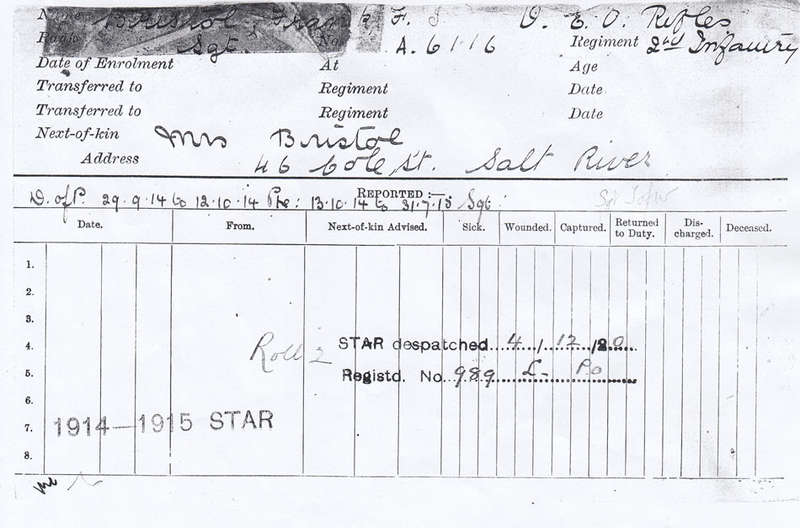 Name Bristol F. J. D. E. O. Rifles
Rank Sgt. No. A. 6116 Regiment 2nd Infantry
Date of Enrolment At Age
Transferred to Regiment Date
Transferred to Regiment Date
Next-of-kin Mrs Bristol
Address 46 Cole St. Salt River
REPORTED:—
D. of P. 29.9.14 to 12.10.14 Pte: 13.10.14 to 31.7.15 Sgt:
Date. From. Next-of-kin Advised. Sick. Wounded. Captured. Returned to Duty. Dis-charged. Deceased.
1.
2.
3.
4. Roll 2 STAR despatched 4/12/20
5. Registd. No 989 L- P.O
6.
7. 1914—1915 STAR
8.